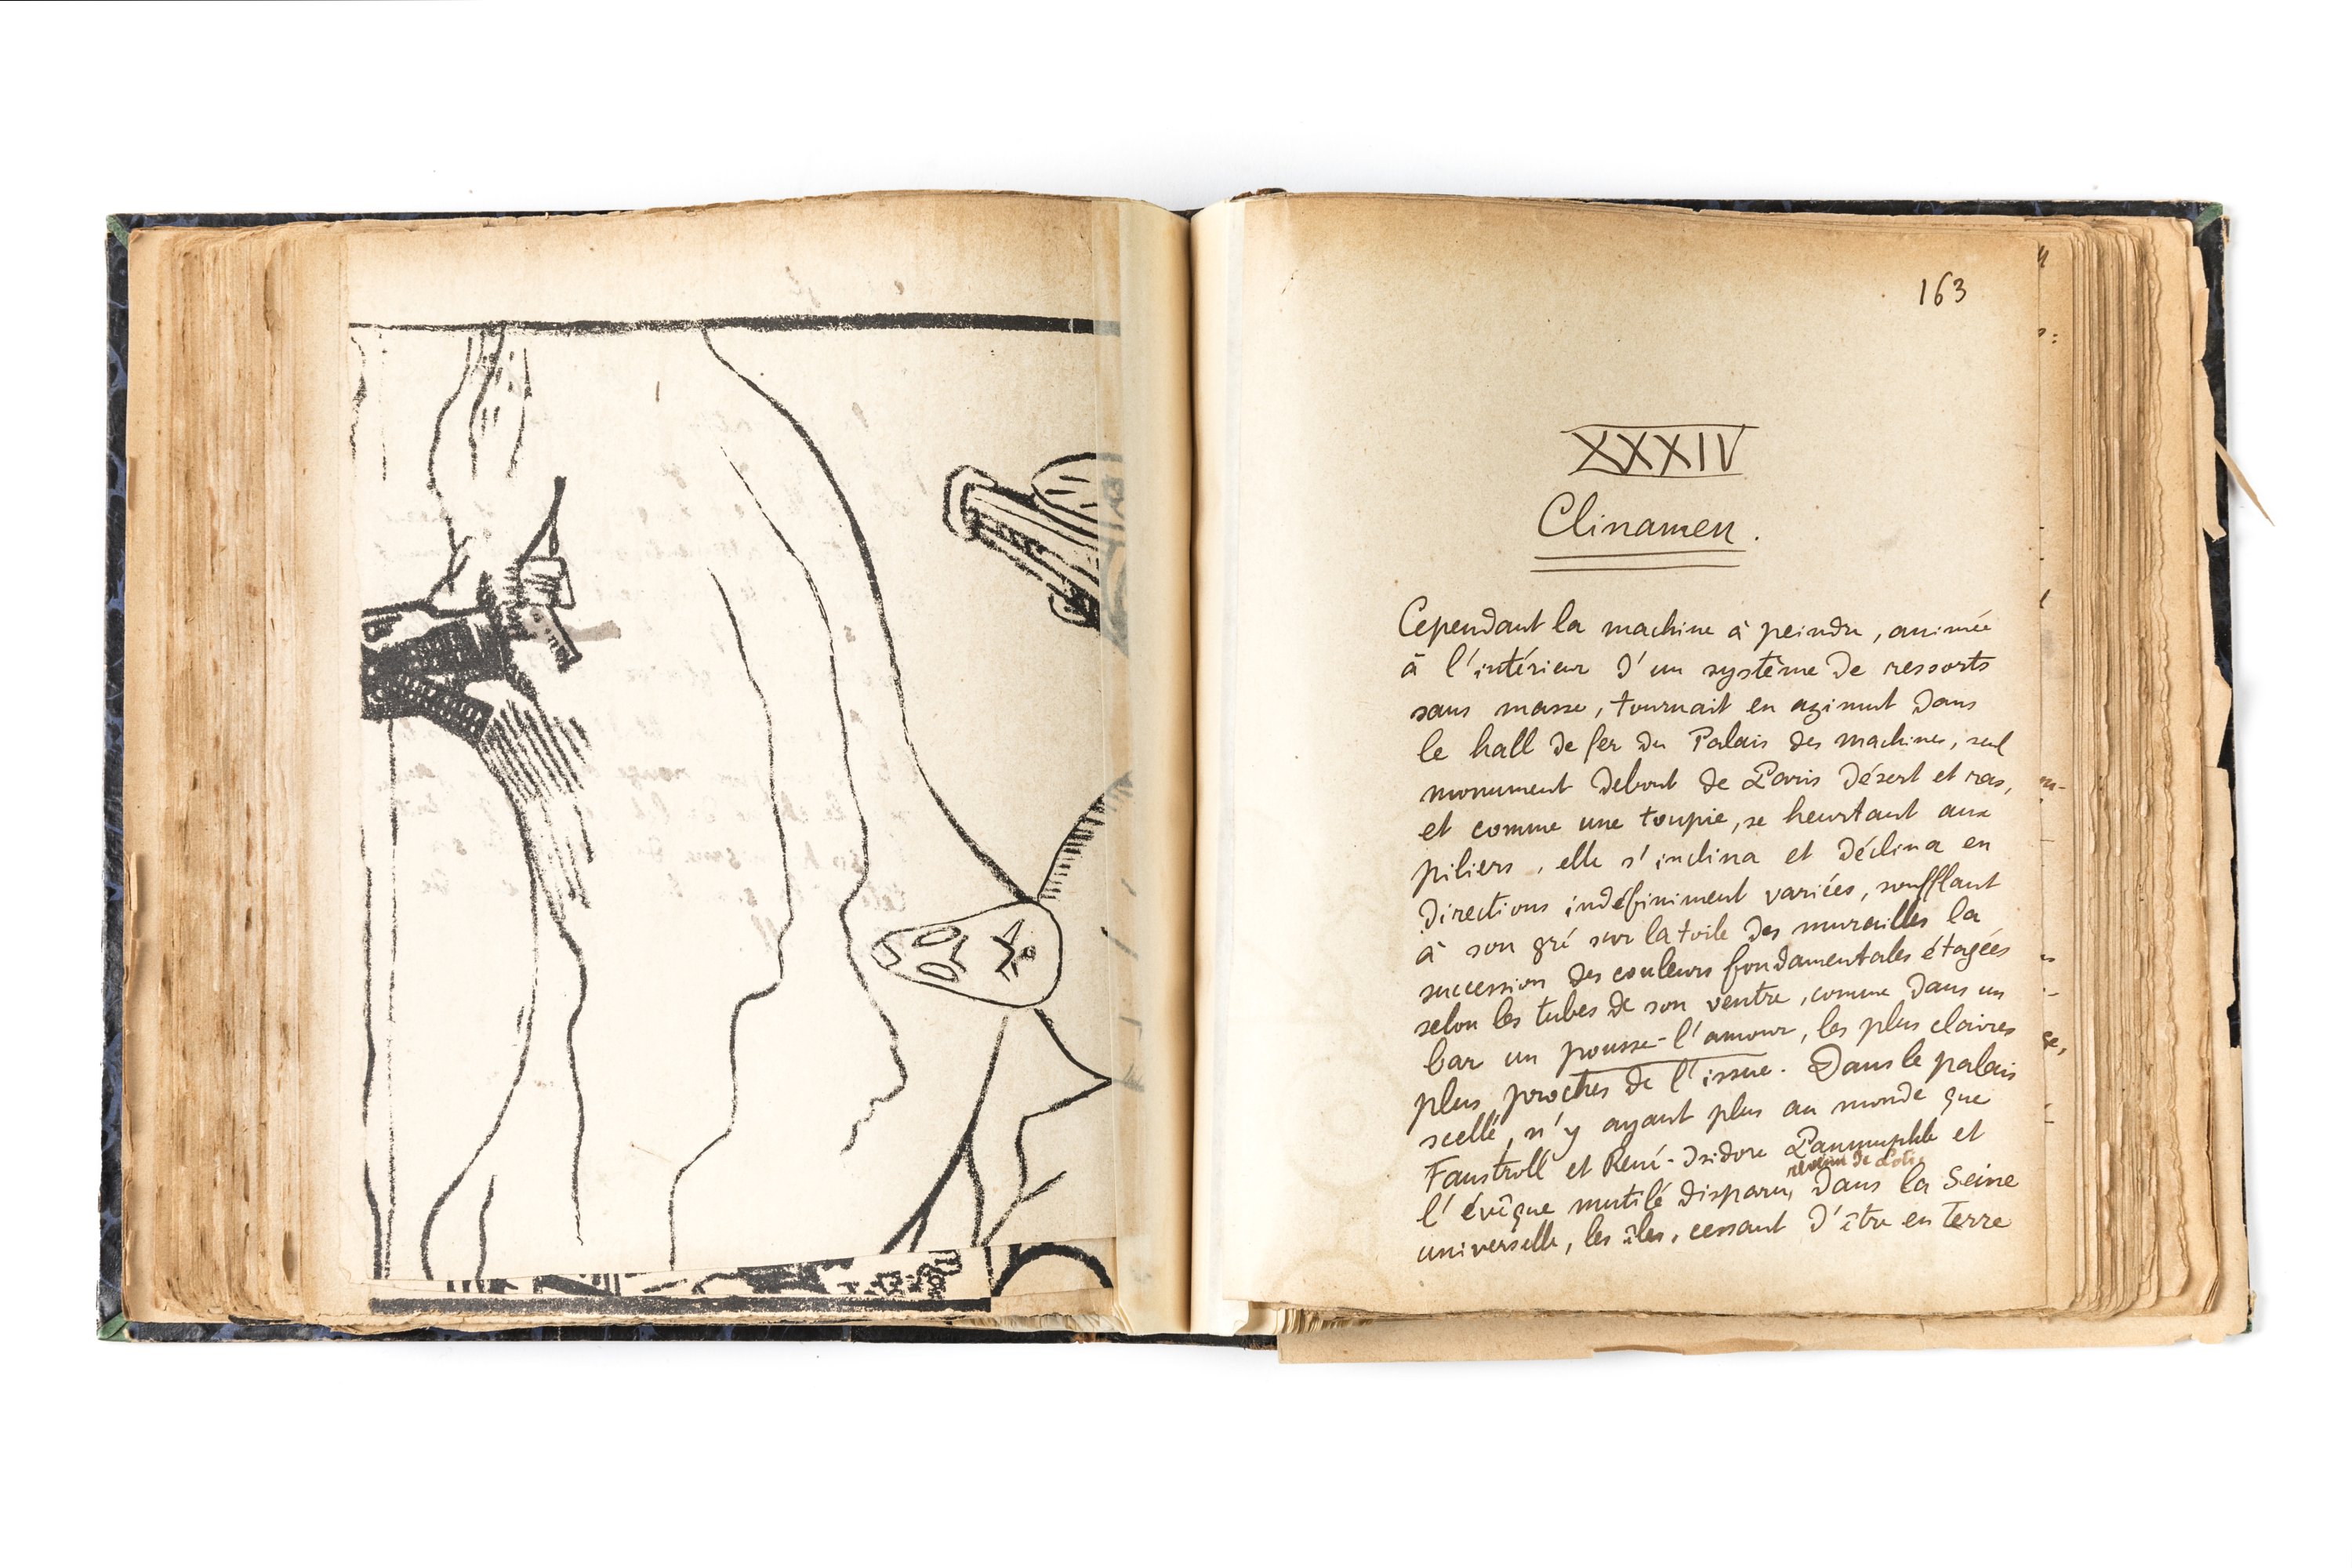 163
XXXIV
Clinamen.
Cependant la machine à peindre, animée
à l'intérieur d'un système de ressorts
sans masse, tournait en azimut dans
le hall de fer du Palais des machines, seul
monument debout de Paris désert et ras,
et comme une toupie, se heurtant aux
piliers, elle s'inclina et déclina en
directions indéfiniment variées, soufflant
à son gré sur la toile des murailles la
succession des couleurs fondamentales étagées
selon les tubes de son ventre, comme dans un
bar un pousse-l'amour, les plus claires
plus proches de l'issue. Dans le palais
scellé, n'y ayant plus au monde que
Faustroll et René-Isidore Panmuphle et
revenu de
l'évêque mutilé disparu, dans la Seine
universelle, les îles, cessant d'être en terre